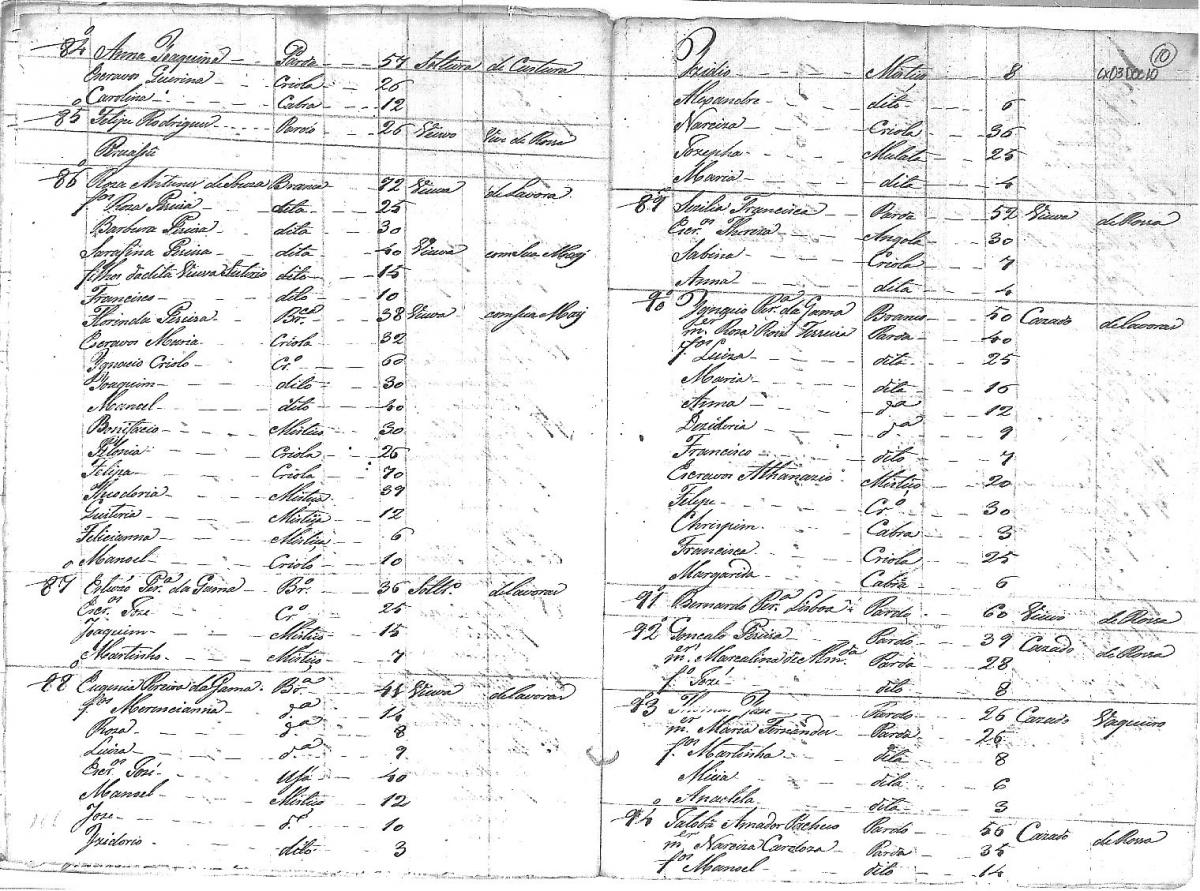 84 Anna Joaquina Parda 54 Soltura de Custura
Escravos Querina Criola 26
Carolina Cabra 12
85 Felipe Rodrigues Pardo 26 Viuvo Vive de Rossa
86 Roza Antunes de Souza Branca 72 Viuva de Lavora
fos Roza Pereira dita 25
Barbara Pereira dita 30
Sarafina Pereira dita 40 Viuva com sua May
filhos da dita Viuva dito 15
Francisco dito 10
Florinda Pereira Brca 38 Viuva com sua May
Escravos Maria Criola 32
Ygnacio Criolo Cro 60
Joaquim dito 30
Manoel dito 40
Bonifacio Mistiço 30
Criola 26
Felipa Criola 70
Theodoria Mistiça 39
Mistiça 12
Felicianna Mistiça 6
Manoel Criolo 10
87 Pera da Gama Bro 36 Soltro de Lavora
Escros Joze Cro 25
Joaquim Mistiço 15
Martinho Mistiço 7
88 Eugenia Pereira da Gama Bra 41 Viuva de Lavora
fos Merencianna da 14
Roza da 8
Luiza da 9
Escros Jozé Ussá 40
Manoel Mistiço 12
Joze do 10
Izidorio dito 3
10
CXD3DOC10
Mistiço 8
Alexandre dito 6
Narciza Criola 36
Jozepha Mulata 25
Maria dita 4
89 Francisca Parda 52 Viuva de Rossa
Escros Thereza Angola 30
Sabina Criola 7
Anna dita 4
90 Ygnacio Pera da Gama Branco 50 Cazado de Lavora
mer Roza Roiz Ferreira Parda 40
fos Luiza dita 25
Maria dita 16
Anna da 12
Dezideria da 9
Francisco dito 7
Escravos Athanazio Mistiço 20
Felipe Cro 30
Chrispim Cabra 3
Francisca Criola 25
Margarida Cabra 6
91 Bernardo Pera Lisboa Pardo 60 Viuvo de Rossa
92 Goncalo Pereira Pardo 39 Cazado de Rossa
mer Marcalina de Mmda Parda 28
fo Jozé dito 8
93 Joze Pardo 26 Cazado Vaqueiro
mer Maria Fernandes Parda 26
fos Martinha dita 8
Micia dita 6
Anacleta dita 3
94 Amador Pacheco Pardo 56 Cazado de Rossa
mer Narciza Cardoza Parda 35
fos Manoel dito 14